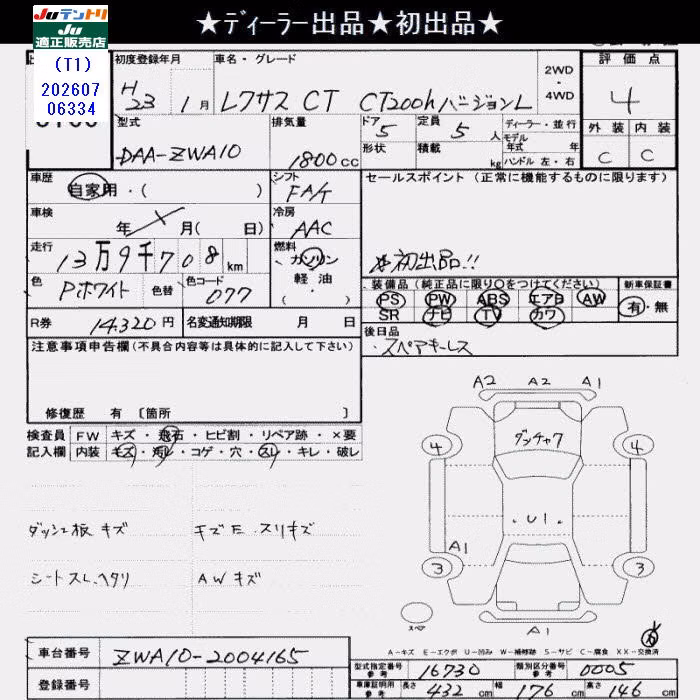 ★ディーラー出品★初出品★
JUテントリ
JU
適正販売店
(T1)
202607
06334
初度登録年月
車名・グレード
2WD
・
4WD
評価点
H
23 1月
レクサス CT CT200h バージョンL
4
外装 内装
C C
型式
排気量
ドア
定員
ディーラー・並行
DAA-ZWA10
1800cc
5
5人
モデル
年式 年
形状
積載
kg
ハンドル 左・右
車歴
自家用・( )
シフト
FAT
セールスポイント (正常に機能するものに限ります)
車検
年 月( 日)
冷房
AAC
☆初出品!!
走行
13万9千708km
燃料
ガソリン
軽油
・( )
色
Pホワイト
色替
色コード
077
装備品(純正品に限り○をつけてください)
新車保証書
PS PW ABS エアB AW
SR ナビ TV カワ
有・無
R券
14,320円
名変通知期限 月 日
後日品
・スペアキーレス
注意事項申告欄(不具合内容等は具体的に記入して下さい)
修復歴 有 〔箇所 〕
検査員
記入欄
FW キズ・飛石・ヒビ割・リペア跡・×要
内装 キズ・汚レ・コゲ・穴・スレ・キレ・破レ
A2 A2 A1
4 ダッチャク 4
U1
A1
3 3
スペア
A1
ダッシュ板 キズ
キズE スリキズ
シートスレ.ヘタリ
AWキズ
A-キズ E-エクボ U-凹み W-補修跡 S-サビ C-腐食 XX-交換済
車台番号
ZWA10-2004165
登録番号
型式指定番号
参考
16730
類別区分番号
参考
0005
車庫証明用
参考
長さ 432 cm 幅 176 cm 高さ 146 cm